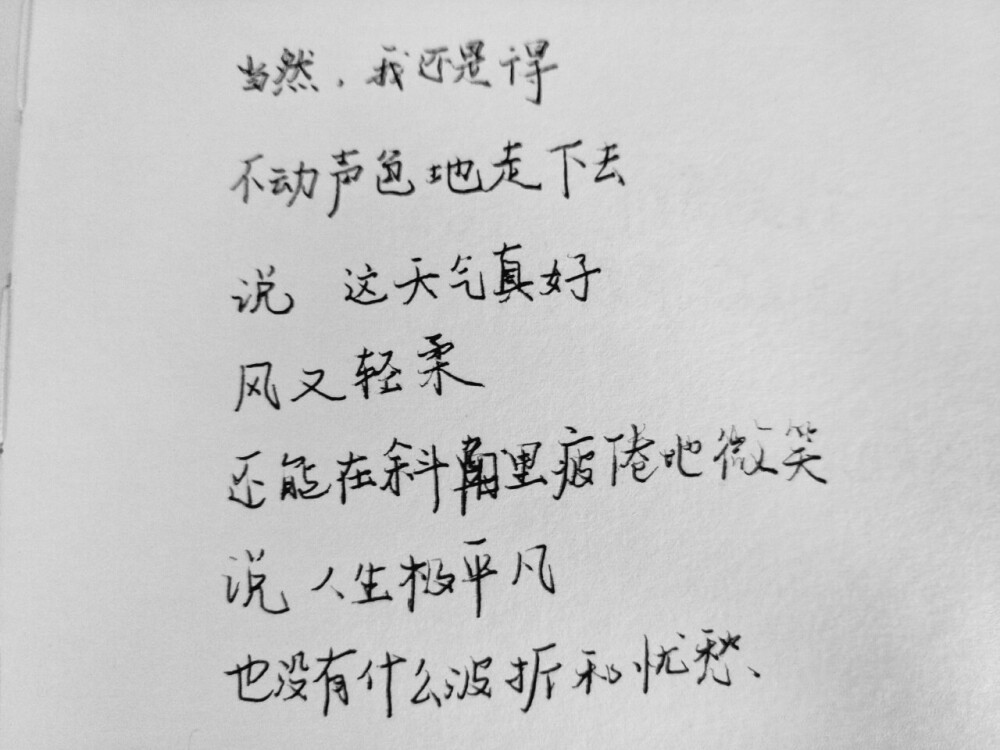 当然，我还是得
不动声色地走下去
说 这天气真好
风又轻柔
还能在斜里疲倦地微笑
说 人生极平凡
也没有什么波折和忧愁、